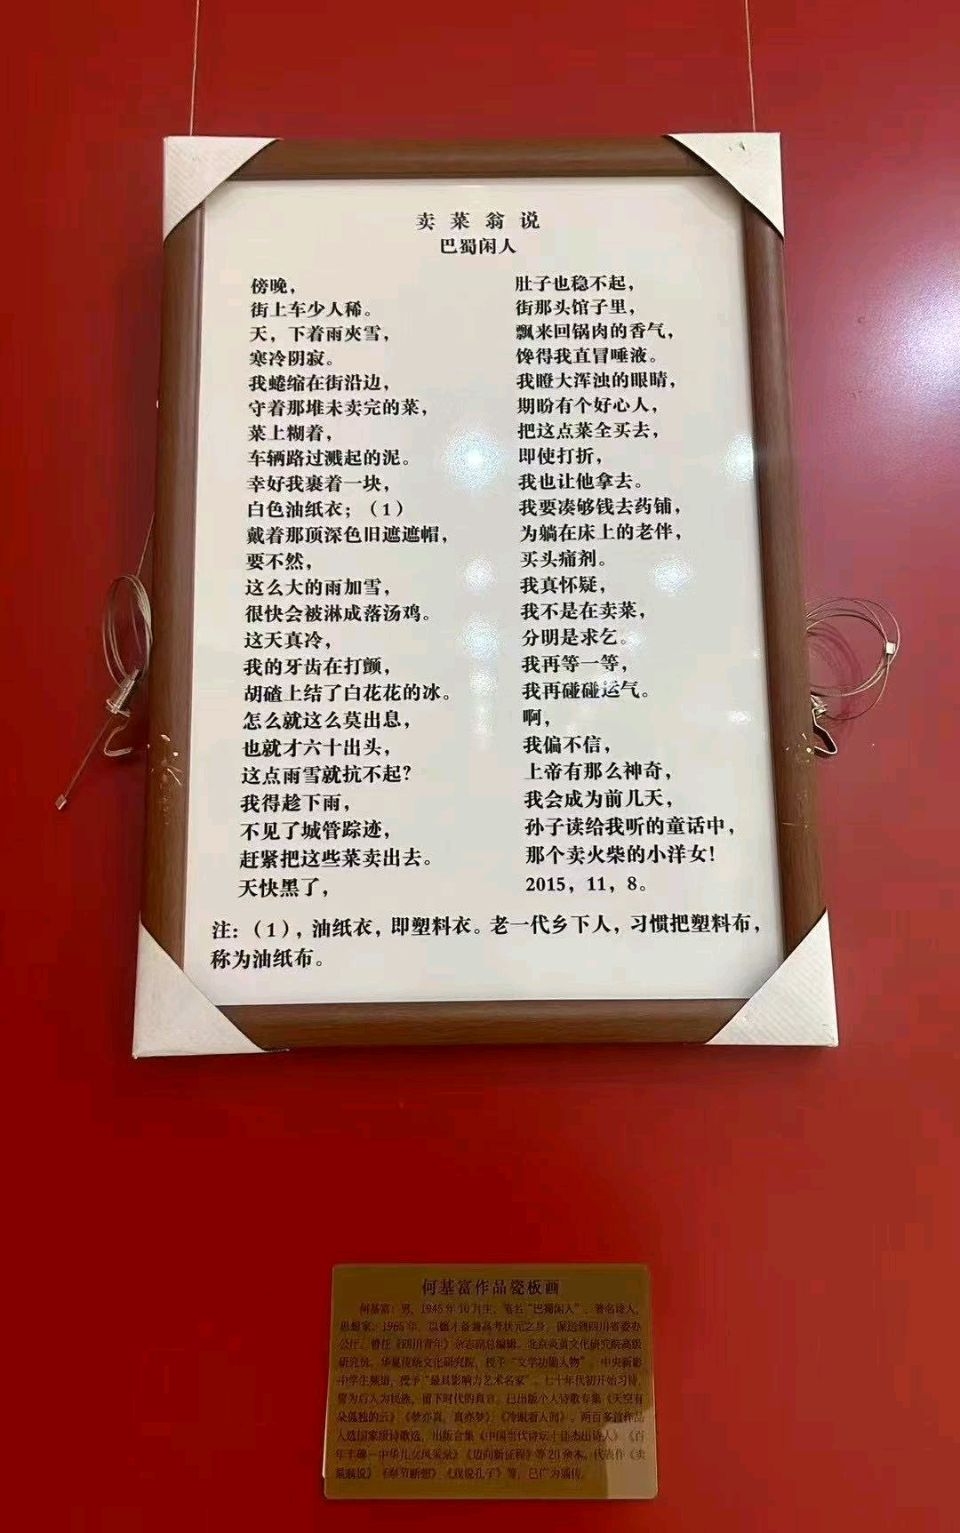 卖菜翁说
巴蜀闲人
傍晚，
街上车少人稀。
天，下着雨夾雪，
寒冷阴寂。
我蜷缩在街沿边，
守着那堆未卖完的菜，
菜上糊着，
车辆路过溅起的泥。
幸好我裹着一块，
白色油纸衣；（1）
戴着那顶深色旧遮遮帽，
要不然，
这么大的雨加雪，
很快会被淋成落汤鸡。
这天真冷，
我的牙齿在打颤，
胡碴上结了白花花的冰。
怎么就这么莫出息，
也就才六十出头，
这点雨雪就抗不起？
我得趁下雨，
不见了城管踪迹，
赶紧把这些菜卖出去。
天快黑了，
肚子也稳不起，
街那头馆子里，
飘来回锅肉的香气，
馋得我直冒唾液。
我瞪大浑浊的眼睛，
期盼有个好心人，
把这点菜全买去，
即使打折，
我也让他拿去。
我要凑够钱去药铺，
为躺在床上的老伴，
买头痛剂。
我真怀疑，
我不是在卖菜，
分明是求乞。
我再等一等，
我再碰碰运气。
啊，
我偏不信，
上帝有那么神奇，
我会成为前几天，
孙子读给我听的童话中，
那个卖火柴的小洋女！
2015，11，8。
注：（1），油纸衣，即塑料衣。老一代乡下人，习惯把塑料布，
称为油纸布。
何基富作品瓷板画
何基富：男，1945年10月生，笔名“巴蜀闲人”，著名诗人，
思想家。1965年，以德才备兼高考状元之身，保送到四川省委办
公厅。曾任《四川青年》杂志副总编辑，北京炎黄文化研究院高级
研究员。华夏传统文化研究院，授予“文学功勋人物”，中央新影
中学生频道，授予“最具影响力艺术名家”。七十年代初开始习诗，
誓为后人为民族，留下时代的真言。已出版个人诗歌专集《天空有
朵孤独的云》《梦亦真，真亦梦》《冷眼看人间》。两百多首作品
入选国家级诗歌选，出版合集《中国当代诗坛十佳杰出诗人》《百
年丰碑－中华儿女风采录》《迈向新征程》等20余本。代表作《卖
菜翁说》《奉节断想》《我说孔子》等，已广为诵传。